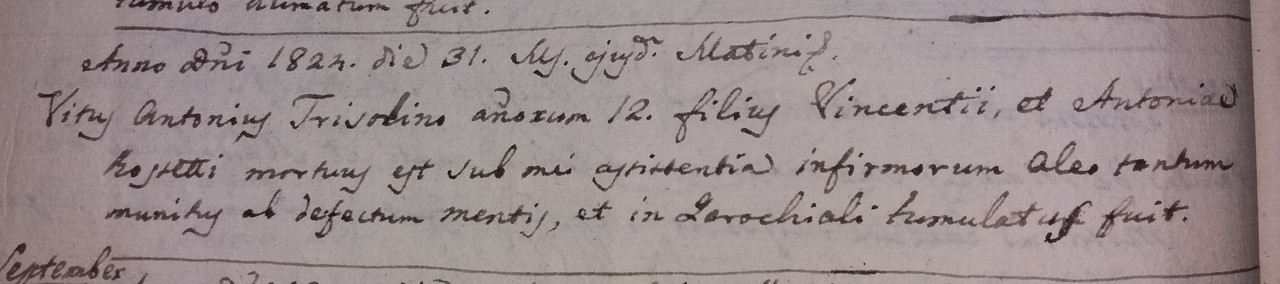 tumulo humatum fuit.
Anno Dñi 1824. die 31. My. ejusd. Matinis.
Vitus Antonius Trisolino añorum 12. filius Vincentii, et Antoniae
Rosetti mortuus est sub mei assistentia infirmorum oleo tantum
munitus ob defectum mentis, et in Parochiali tumulatus fuit.
September